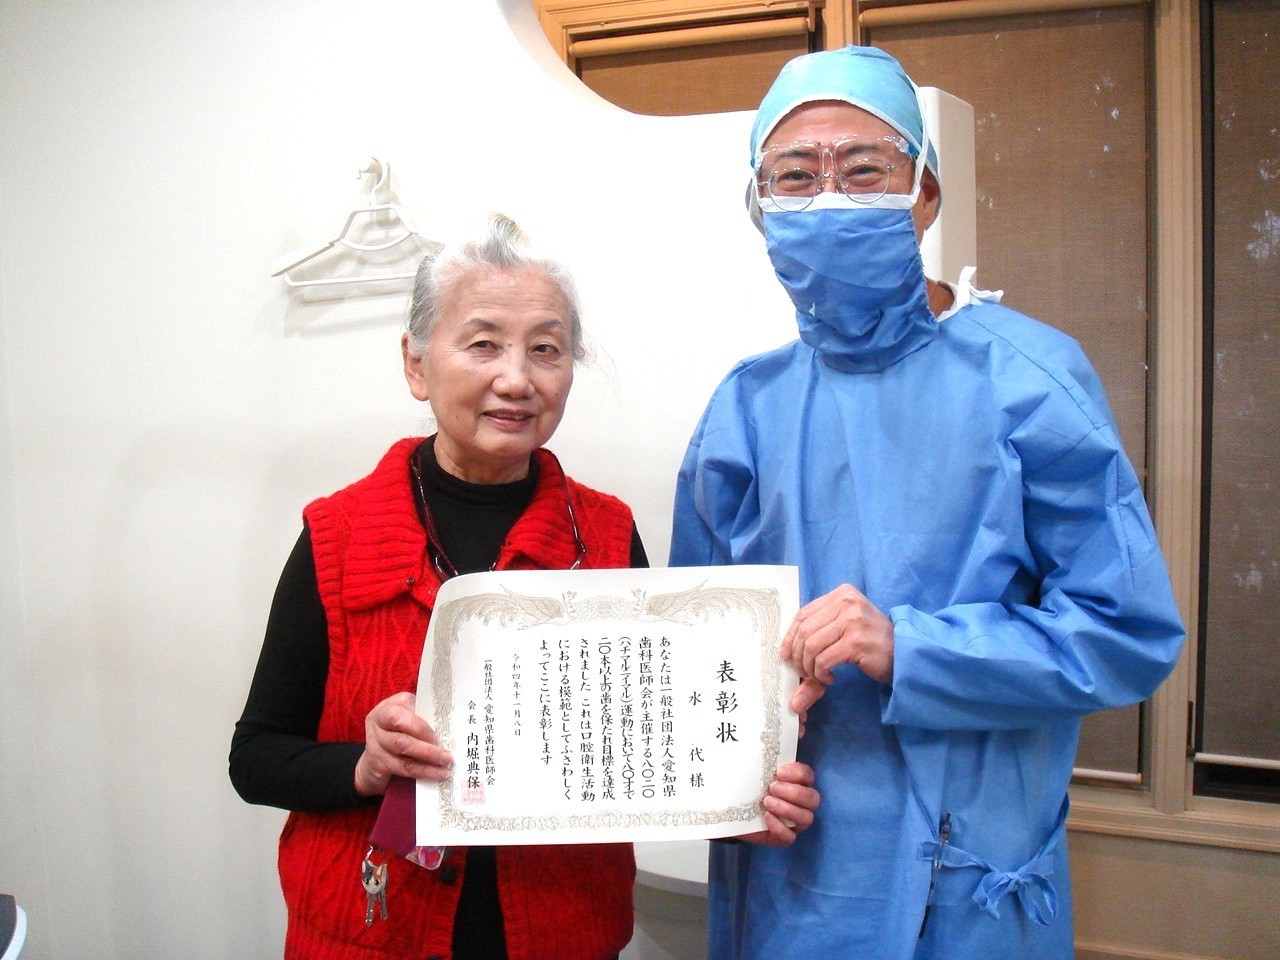 表彰状
水 代 様
あなたは一般社団法人愛知県
歯科医師会が主催する八〇二〇
(ハチマルイマル)運動において八〇才で
二〇本以上の歯を保たれ目標を達成
されました これは口腔衛生活動
における模範としてふさわしく
よってここに表彰します
令和四年十一月八日
一般社団法人 愛知県歯科医師会
会長 内堀典保